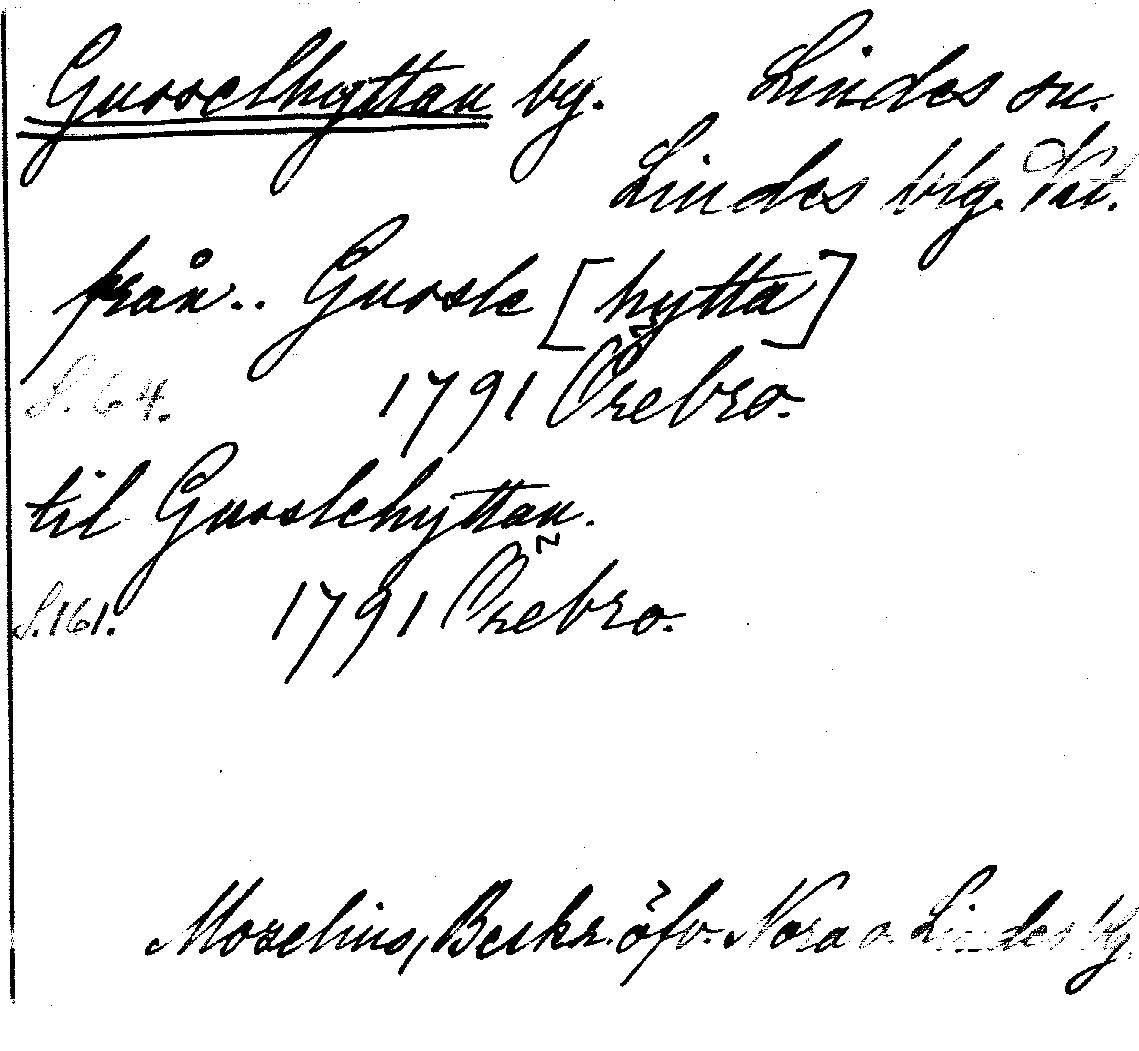 Gusselhyttan by. Lindes sn.
Lindes blg. Vst.
från.. Gussle [hytta]
S. 64. 1791 Örebro.
til Gusslehyttan.
S. 161. 1791 Örebro.
Morelius, Beskr. öfv. Nora o. Lindes blg.